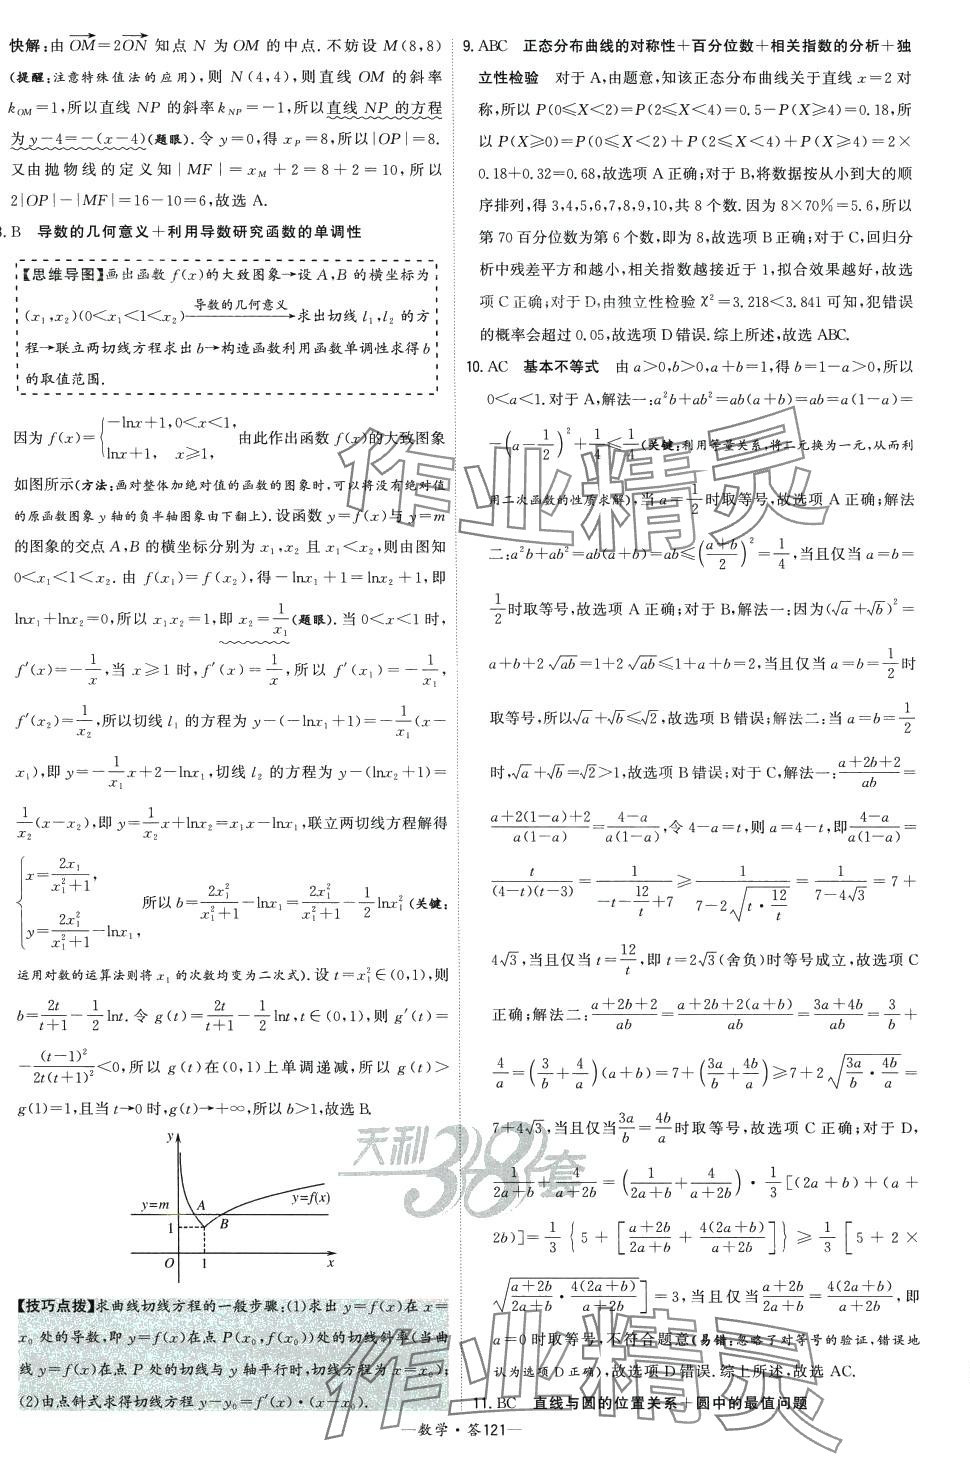 快解:由OM=2ON知点 N 为 OM 的中点.不妨设 M(8,8)
(提醒:注意特殊值法的应用),则 N(4,4),则直线 OM 的斜率
k_{OM}=1,所以直线 NP 的斜率k_{NP}=-1,所以直线 NP 的方程
为 y-4=-(x-4)(题眼).令 y=0,得 x_P=8,所以|OP|=8.
又由抛物线的定义知|MF|=x_M+2=8+2=10,所以
2|OP|-|MF|=16-10=6,故选 A.
. B 导数的几何意义+利用导数研究函数的单调性
【思维导图】画出函数 f(x)的大致图象→设 A,B 的横坐标为
(x₁,x₂)(0<x₁<1<x₂) 导数的几何意义→求出切线 l₁,l₂ 的方
程→联立两切线方程求出 b→构造函数利用函数单调性求得 b
的取值范围.
因为 f(x)={-lnx+1,0<x<1, lnx+1, x≥1, 由此作出函数 f(x)的大致图象
如图所示(方法:画对整体加绝对值的函数的图象时,可以将没有绝对值
的原函数图象 y 轴的负半轴图象由下翻上).设函数 y=f(x)与 y=m
的图象的交点 A,B 的横坐标分别为 x₁,x₂ 且 x₁<x₂,则由图知
0<x₁<1<x₂.由 f(x₁)=f(x₂),得-lnx₁+1=lnx₂+1,即
lnx₁+lnx₂=0,所以 x₁x₂=1,即 x₂=1/x₁(题眼).当 0<x<1 时,
f′(x)=-1/x,当 x≥1 时,f′(x)=1/x,所以 f′(x₁)=-1/x₁,
f′(x₂)=1/x₂,所以切线 l₁ 的方程为 y-(-lnx₁+1)=-1/x₁(x-
x₁),即 y=-1/x₁x+2-lnx₁,切线 l₂ 的方程为 y-(lnx₂+1)=
1/x₂(x-x₂),即 y=1/x₂x+lnx₂=x₁x-lnx₁,联立两切线方程解得
{x=2x₁/(x₁²+1), y=2x₁²/(x₁²+1)-lnx₁, 所以 b=2x₁²/(x₁²+1)-lnx₁=2x₁²/(x₁²+1)-1/2lnx₁²(关键:
运用对数的运算法则将 x₁ 的次数均变为二次式).设 t=x₁²∈(0,1),则
b=2t/(t+1)-1/2lnt.令 g(t)=2t/(t+1)-1/2lnt,t∈(0,1),则 g′(t)=
-(t-1)²/2t(t+1)²<0,所以 g(t)在(0,1)上单调递减,所以 g(t)>
g(1)=1,且当 t→0 时,g(t)→+∞,所以 b>1,故选 B.
y
y=m A B y=f(x)
1
O 1 x
【技巧点拨】求曲线切线方程的一般步骤:(1)求出 y=f(x)在 x=
x₀ 处的导数,即 y=f(x)在点 P(x₀,f(x₀))处的切线斜率(当曲
线 y=f(x)在点 P 处的切线与 y 轴平行时,切线方程为 x=x₀);
(2)由点斜式求得切线方程 y-y₀=f′(x)·(x-x₀).
9. ABC 正态分布曲线的对称性+百分位数+相关指数的分析+独
立性检验 对于 A,由题意,知该正态分布曲线关于直线 x=2 对
称,所以 P(0≤X<2)=P(2≤X<4)=0.5-P(X≥4)=0.18,所
以 P(X≥0)=P(0≤X<2)+P(2≤X<4)+P(X≥4)=2×
0.18+0.32=0.68,故选项 A 正确;对于 B,将数据按从小到大的顺
序排列,得 3,4,5,6,7,8,9,10,共 8 个数.因为 8×70%=5.6,所以
第 70 百分位数为第 6 个数,即为 8,故选项 B 正确;对于 C,回归分
析中残差平方和越小,相关指数越接近于 1,拟合效果越好,故选
项 C 正确;对于 D,由独立性检验 χ²=3.218<3.841 可知,犯错误
的概率会超过 0.05,故选项 D 错误.综上所述,故选 ABC.
10. AC 基本不等式 由 a>0,b>0,a+b=1,得 b=1-a>0,所以
0<a<1.对于 A,解法一:a²b+ab²=ab(a+b)=ab=a(1-a)=
-(a-1/2)²+1/4≤1/4(关键:利用等量关系,将二元换为一元,从而利
用二次函数的性质求解),当 a=1/2时取等号,故选项 A 正确;解法
二:a²b+ab²=ab(a+b)=ab≤((a+b)/2)²=1/4,当且仅当 a=b=
1/2时取等号,故选项 A 正确;对于 B,解法一:因为(√a+√b)²=
a+b+2√ab=1+2√ab≤1+a+b=2,当且仅当 a=b=1/2时
取等号,所以√a+√b≤√2,故选项 B 错误;解法二:当 a=b=1/2
时,√a+√b=√2>1,故选项 B 错误;对于 C,解法一:(a+2b+2)/ab=
(a+2(1-a)+2)/a(1-a)=(4-a)/a(1-a),令 4-a=t,则 a=4-t,即(4-a)/a(1-a)=
t/(4-t)(t-3)=1/(-t-12/t+7)≥1/(7-2√(t·12/t))=1/(7-4√3)=7+
4√3,当且仅当 t=12/t,即 t=2√3(舍负)时等号成立,故选项 C
正确;解法二:(a+2b+2)/ab=(a+2b+2(a+b))/ab=(3a+4b)/ab=3/b+
4/a=(3/b+4/a)(a+b)=7+(3a/b+4b/a)≥7+2√(3a/b·4b/a)=
7+4√3,当且仅当3a/b=4b/a时取等号,故选项 C 正确;对于 D,
1/(2a+b)+4/(a+2b)=(1/(2a+b)+4/(a+2b))·1/3[(2a+b)+(a+
2b)]=1/3{5+[(a+2b)/(2a+b)+4(2a+b)/(a+2b)]}≥1/3[5+2×
√((a+2b)/(2a+b)·4(2a+b)/(a+2b))]=3,当且仅当(a+2b)/(2a+b)=4(2a+b)/(a+2b),即
a=0 时取等号,不符合题意(易错:忽略了对等号的验证,错误地
认为选项 D 正确),故选项 D 错误.综上所述,故选 AC.
11. BC 直线与圆的位置关系+圆中的最值问题
—数学·答121—
作业精灵
天利38套
作业精灵